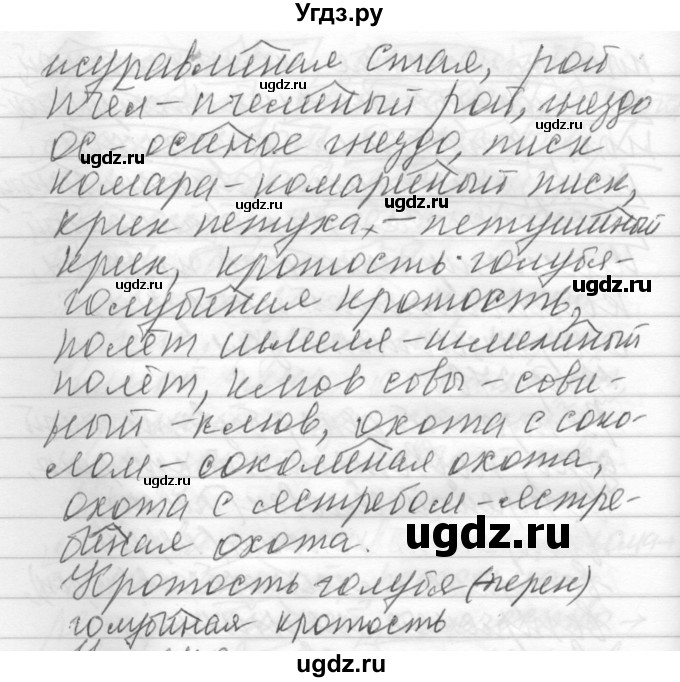 Угдз.ру
журавлиная стая, рой
пчёл - пчелиный рой, гнездо
ос - осиное гнездо, писк
комара - комариный писк,
крик петуха, - петушиный
крик, кротость голубя -
голубиная кротость,
полёт шмеля - шмелиный
полёт, клюв совы - сови-
ный - клюв, охота с соко-
лом - соколиная охота,
охота с ястребом - ястре-
биная охота.
Кротость голубя (перен)
голубиная кротость
ugdz.ru
ugdz.ru
ugdz.ru
ugdz.ru
ugdz.ru
ugdz.ru
ugdz.ru
ugdz.ru
ugdz.ru
ugdz.ru